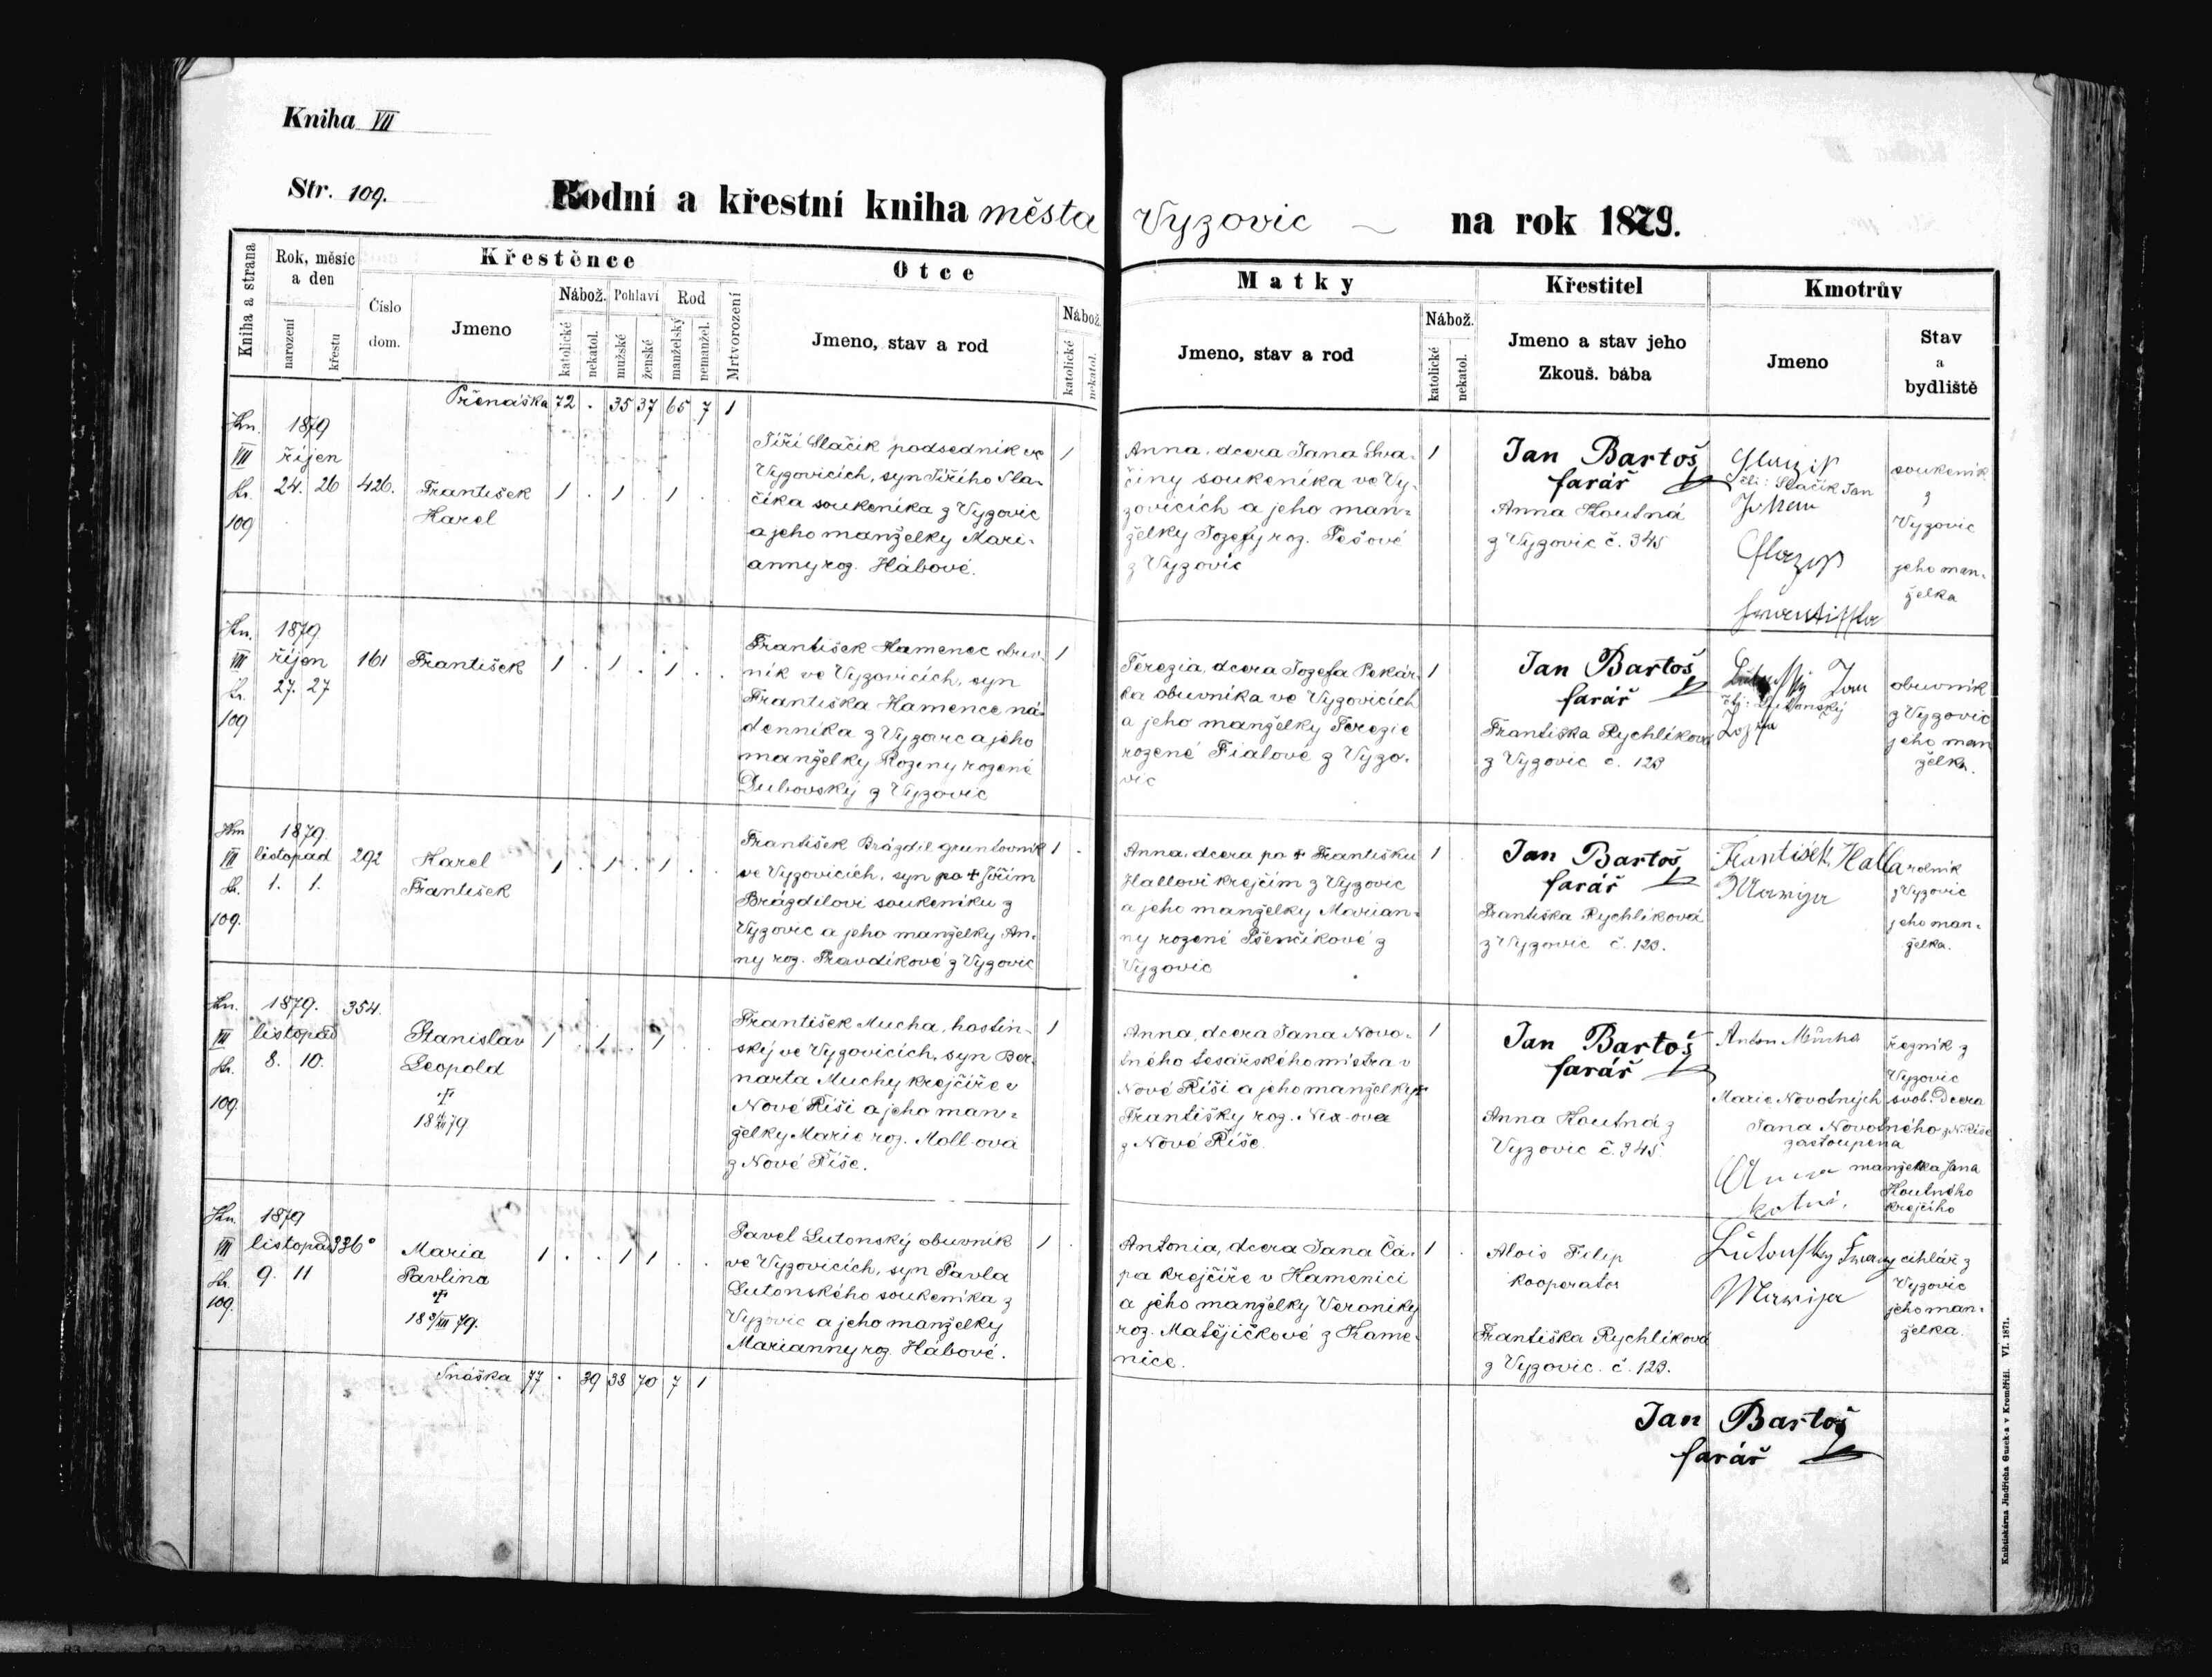 Kniha VII
Str. 109.
Rodní a křestní kniha města Vyzovic na rok 1879.
Kniha a strana
Rok, měsíc a den
narození
křestu
Křestěnce
Číslo dom.
Jmeno
Nábož.
katolické
nekatol.
Pohlaví
mužské
ženské
Rod
manželský
nemanžel.
Mrtvorození
Otce
Jmeno, stav a rod
Nábož.
katolické
nekatol.
Matky
Jmeno, stav a rod
Nábož.
katolické
nekatol.
Křestitel
Jmeno a stav jeho
Zkouš. bába
Kmotrův
Jmeno
Stav
a
bydliště
Přenáška 72 . 35 37 65 7 1
Kn. VII Str. 109
1879
říjen
24. 26
426.
František
Karel
1 . 1 . 1 . .
Jiří Slačík podsedník ve
Vyzovicích, syn Jiřího Sla-
číka soukeníka z Vyzovic
a jeho manželky Mari-
anny roz. Hábové.
1
Anna, dcera Jana Sva-
činy soukeníka ve Vy-
zovicích a jeho man-
želky Jozefy roz. Pešové
z Vyzovic
1
Jan Bartoš
farář
Anna Houtná
z Vyzovic č. 345
čti: Slačík Jan
Johan
soukeník
z
Vyzovic
jeho man-
želka
Kn. VII Str. 109
1879
říjen
27. 27
161
František
1 . 1 . 1 . .
František Kamenec obuv-
ník ve Vyzovicích, syn
Františka Kamence ná-
denníka z Vyzovic a jeho
manželky Roziny rozené
Dubovský z Vyzovic
1
Terezia, dcera Jozefa Pekár-
ka obuvníka ve Vyzovicích
a jeho manželky Terezie
rozené Fialové z Vyzo-
vic
1
Jan Bartoš
farář
Františka Rychlíková
z Vyzovic č. 123
Jan
čti: Lutonský
obuvník
z Vyzovic
jeho man
želka.
Kn. VII Str. 109.
1879.
listopad
1. 1.
292
Karel
František
1 . 1 . 1 . .
František Brázdil gruntovník
ve Vyzovicích, syn po † Jiřím
Brázdilovi soukeníku z
Vyzovic a jeho manželky An-
ny roz. Pravdíkové z Vyzovic
1 .
Anna, dcera po † Františku
Hallovi krejčím z Vyzovic
a jeho manželky Marian-
ny rozené Pšenčíkové z
Vyzovic
1
Jan Bartoš
farář
Františka Rychlíková
z Vyzovic č. 123.
František Halla
Marija
rolník
z Vyzovic
jeho man-
želka.
Kn. VII Str. 109.
1879.
listopad
8. 10.
354.
Stanislav
Leopold
†
1 . 1 . 1 . .
František Mucha, hostin-
ský ve Vyzovicích, syn Ber-
narta Muchy krejčíře v
Nové Říši a jeho man-
želky Marie roz. Moll-ová
z Nové Říše.
1
Anna, dcera Jana Novo-
tného tesařského mistra v
Nové Říši a jeho manželky
Františky roz. Nix-ova
z Nové Říše.
1
Jan Bartoš
farář
Anna Houtná z
Vyzovic č. 345
Anton Mucha
řezník z
Vyzovic
Marie Novotných svob. dcera
Jana Novotného z N. Říše
zastoupena
Anna manželka Jana
Houtného
krejčího
Kn. VII Str. 109.
1879
listopad
9. 11
336
Maria
Pavlina
†
1 . . 1 1 . .
Pavel Lutonský obuvník
ve Vyzovicích, syn Pavla
Lutonského soukeníka z
Vyzovic a jeho manželky
Marianny roz. Hábové.
1 .
Antonia, dcera Jana Čá-
pa krejčíře v Kamenici
a jeho manželky Veroniky
roz. Matějíčkové z Kame-
nice.
1 .
Alois Filip
kooperator
Františka Rychlíková
z Vyzovic. č. 123.
Marija
cihlář z
Vyzovic
jeho man-
želka.
Snáška 77 . 39 38 70 7 1
Jan Bartoš
farář
Knihtiskárna Jindřicha Gusek-a v Kroměříži. VI. 1871.